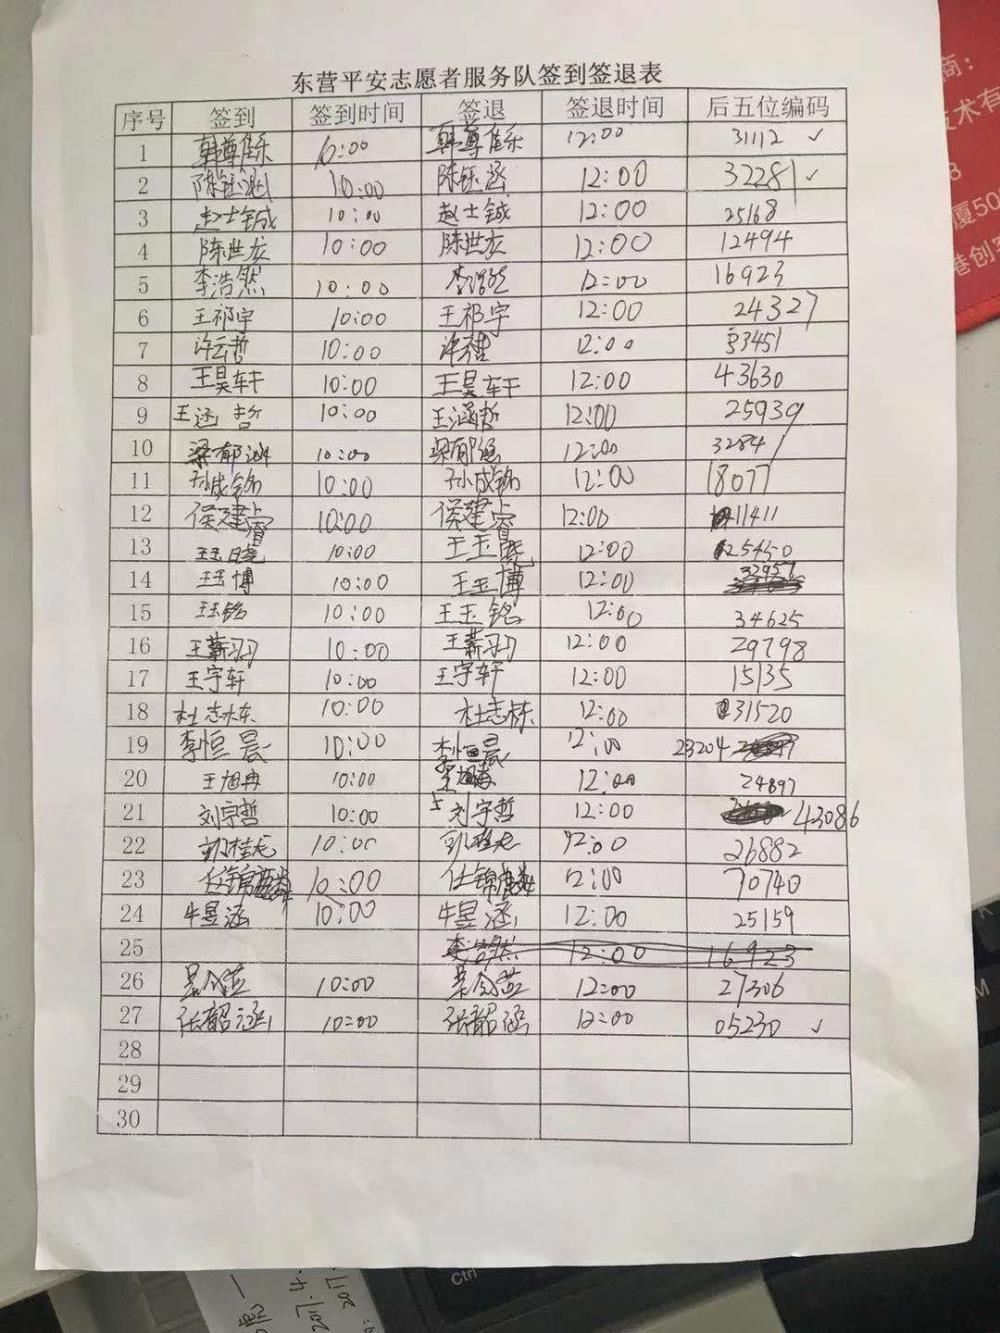 东营平安志愿者服务队签到签退表
序号 签到 签到时间 签退 签退时间 后五位编码
1 韩尊 10:00 韩尊 12:00 31112 ✓
2 陈钰涵 10:00 陈钰涵 12:00 32281 ✓
3 赵士铖 10:00 赵士铖 12:00 25168
4 陈世友 10:00 陈世友 12:00 12494
5 李浩然 10:00 李浩然 12:00 16923
6 王祁宇 10:00 王祁宇 12:00 24327
7 许云哲 10:00 12:00 53451
8 王昊轩 10:00 王昊轩 12:00 43630
9 王涵哲 10:00 王涵哲 12:00 25939
10 梁郁涵 10:00 12:00 3284
11 孙成铭 10:00 孙成铭 12:00 18077
12 侯建睿 10:00 侯建睿 12:00 11411
13 王玉晓 10:00 王玉 12:00 25450
14 王玉博 10:00 王玉博 12:00 32957
15 王玉铭 10:00 王玉铭 12:00 34625
16 王薪 10:00 王薪 12:00 29798
17 王宇轩 10:00 王宇轩 12:00 15135
18 杜志栋 10:00 杜志栋 12:00 31520
19 李恒晨 10:00 李恒晨 12:00 23204
20 王旭冉 10:00 12:00 24897
21 刘宇哲 10:00 刘宇哲 12:00 43086
22 刘桂龙 10:00 刘桂龙 12:00 26882
23 任锦 10:00 任锦 12:00 70740
24 牛昱涵 10:00 牛昱涵 12:00 25159
25 李浩然 12:00 16923
26 10:00 12:00 27306
27 张韶涵 10:00 张韶涵 12:00 05230 ✓
28
29
30
商:
技术有
8
厦50
港创
Ctrl